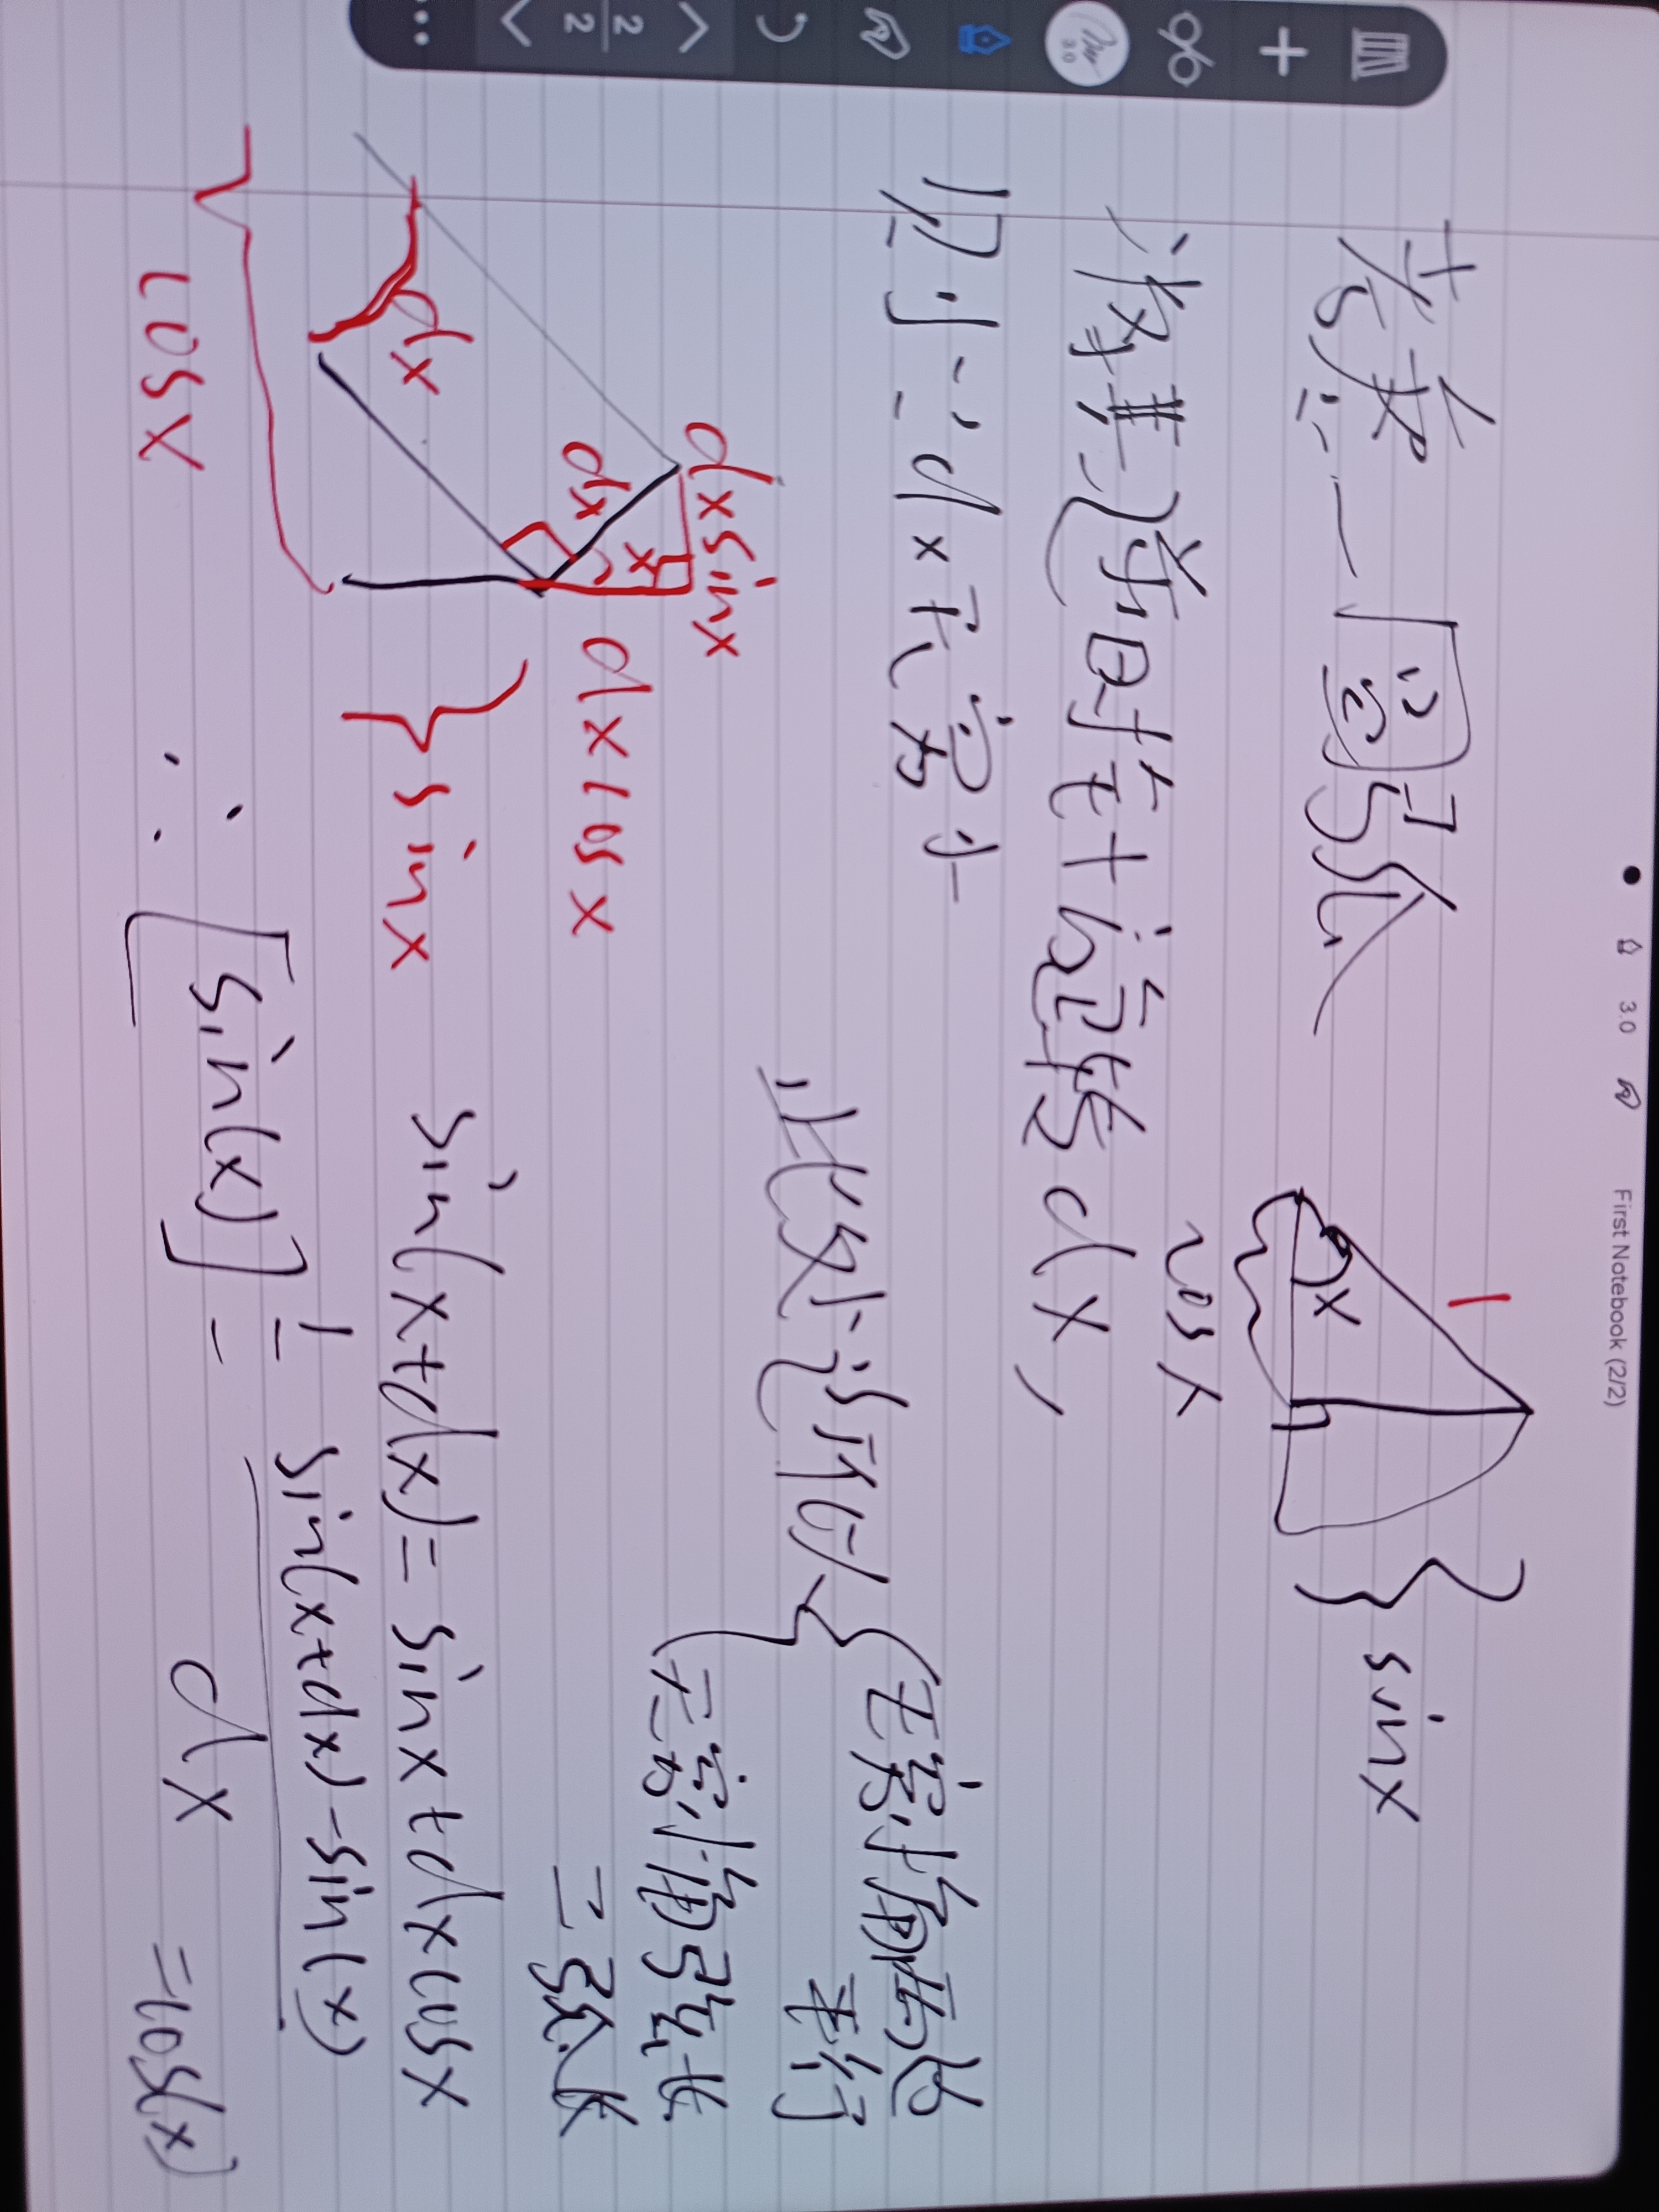 First Notebook (2/2)
3.0
3.0
2
2
考虑一圆弧
1
x
cos x
} sin x
若其逆时针旋转dx,
则:dx无穷小
此处调用 { 无穷小角两边平行
无穷小角弧长
=弦长
dx sin x
dx
x
dx
dx cos x
} sin x
cos x
sin(x+dx)= sin x + dx cos x
∴ [sin(x)]' = sin(x+dx)-sin(x)
dx
=cos(x)